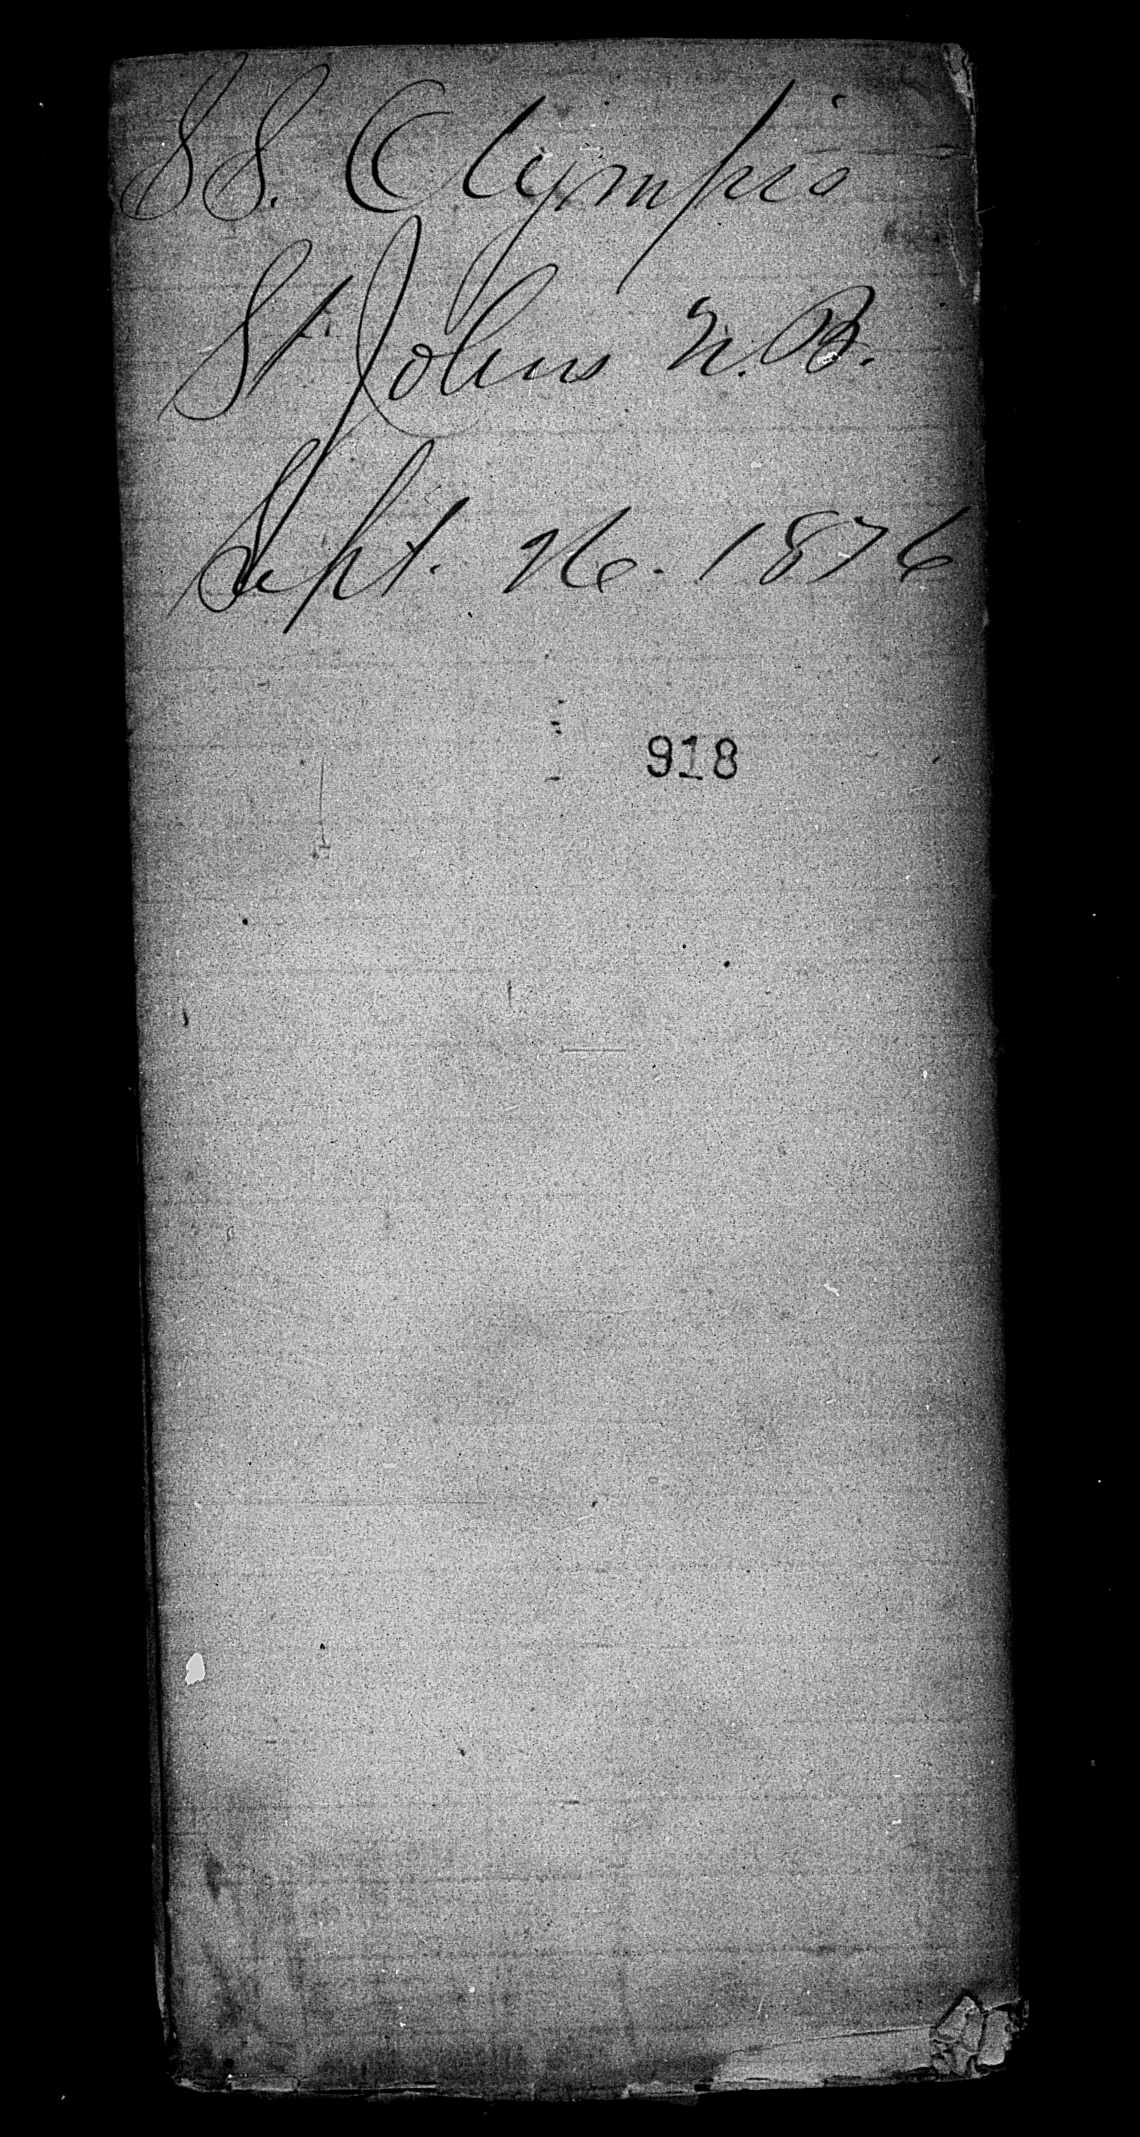 SS. Olympia
St Johns N.B.
Sept. 26. 1876
918